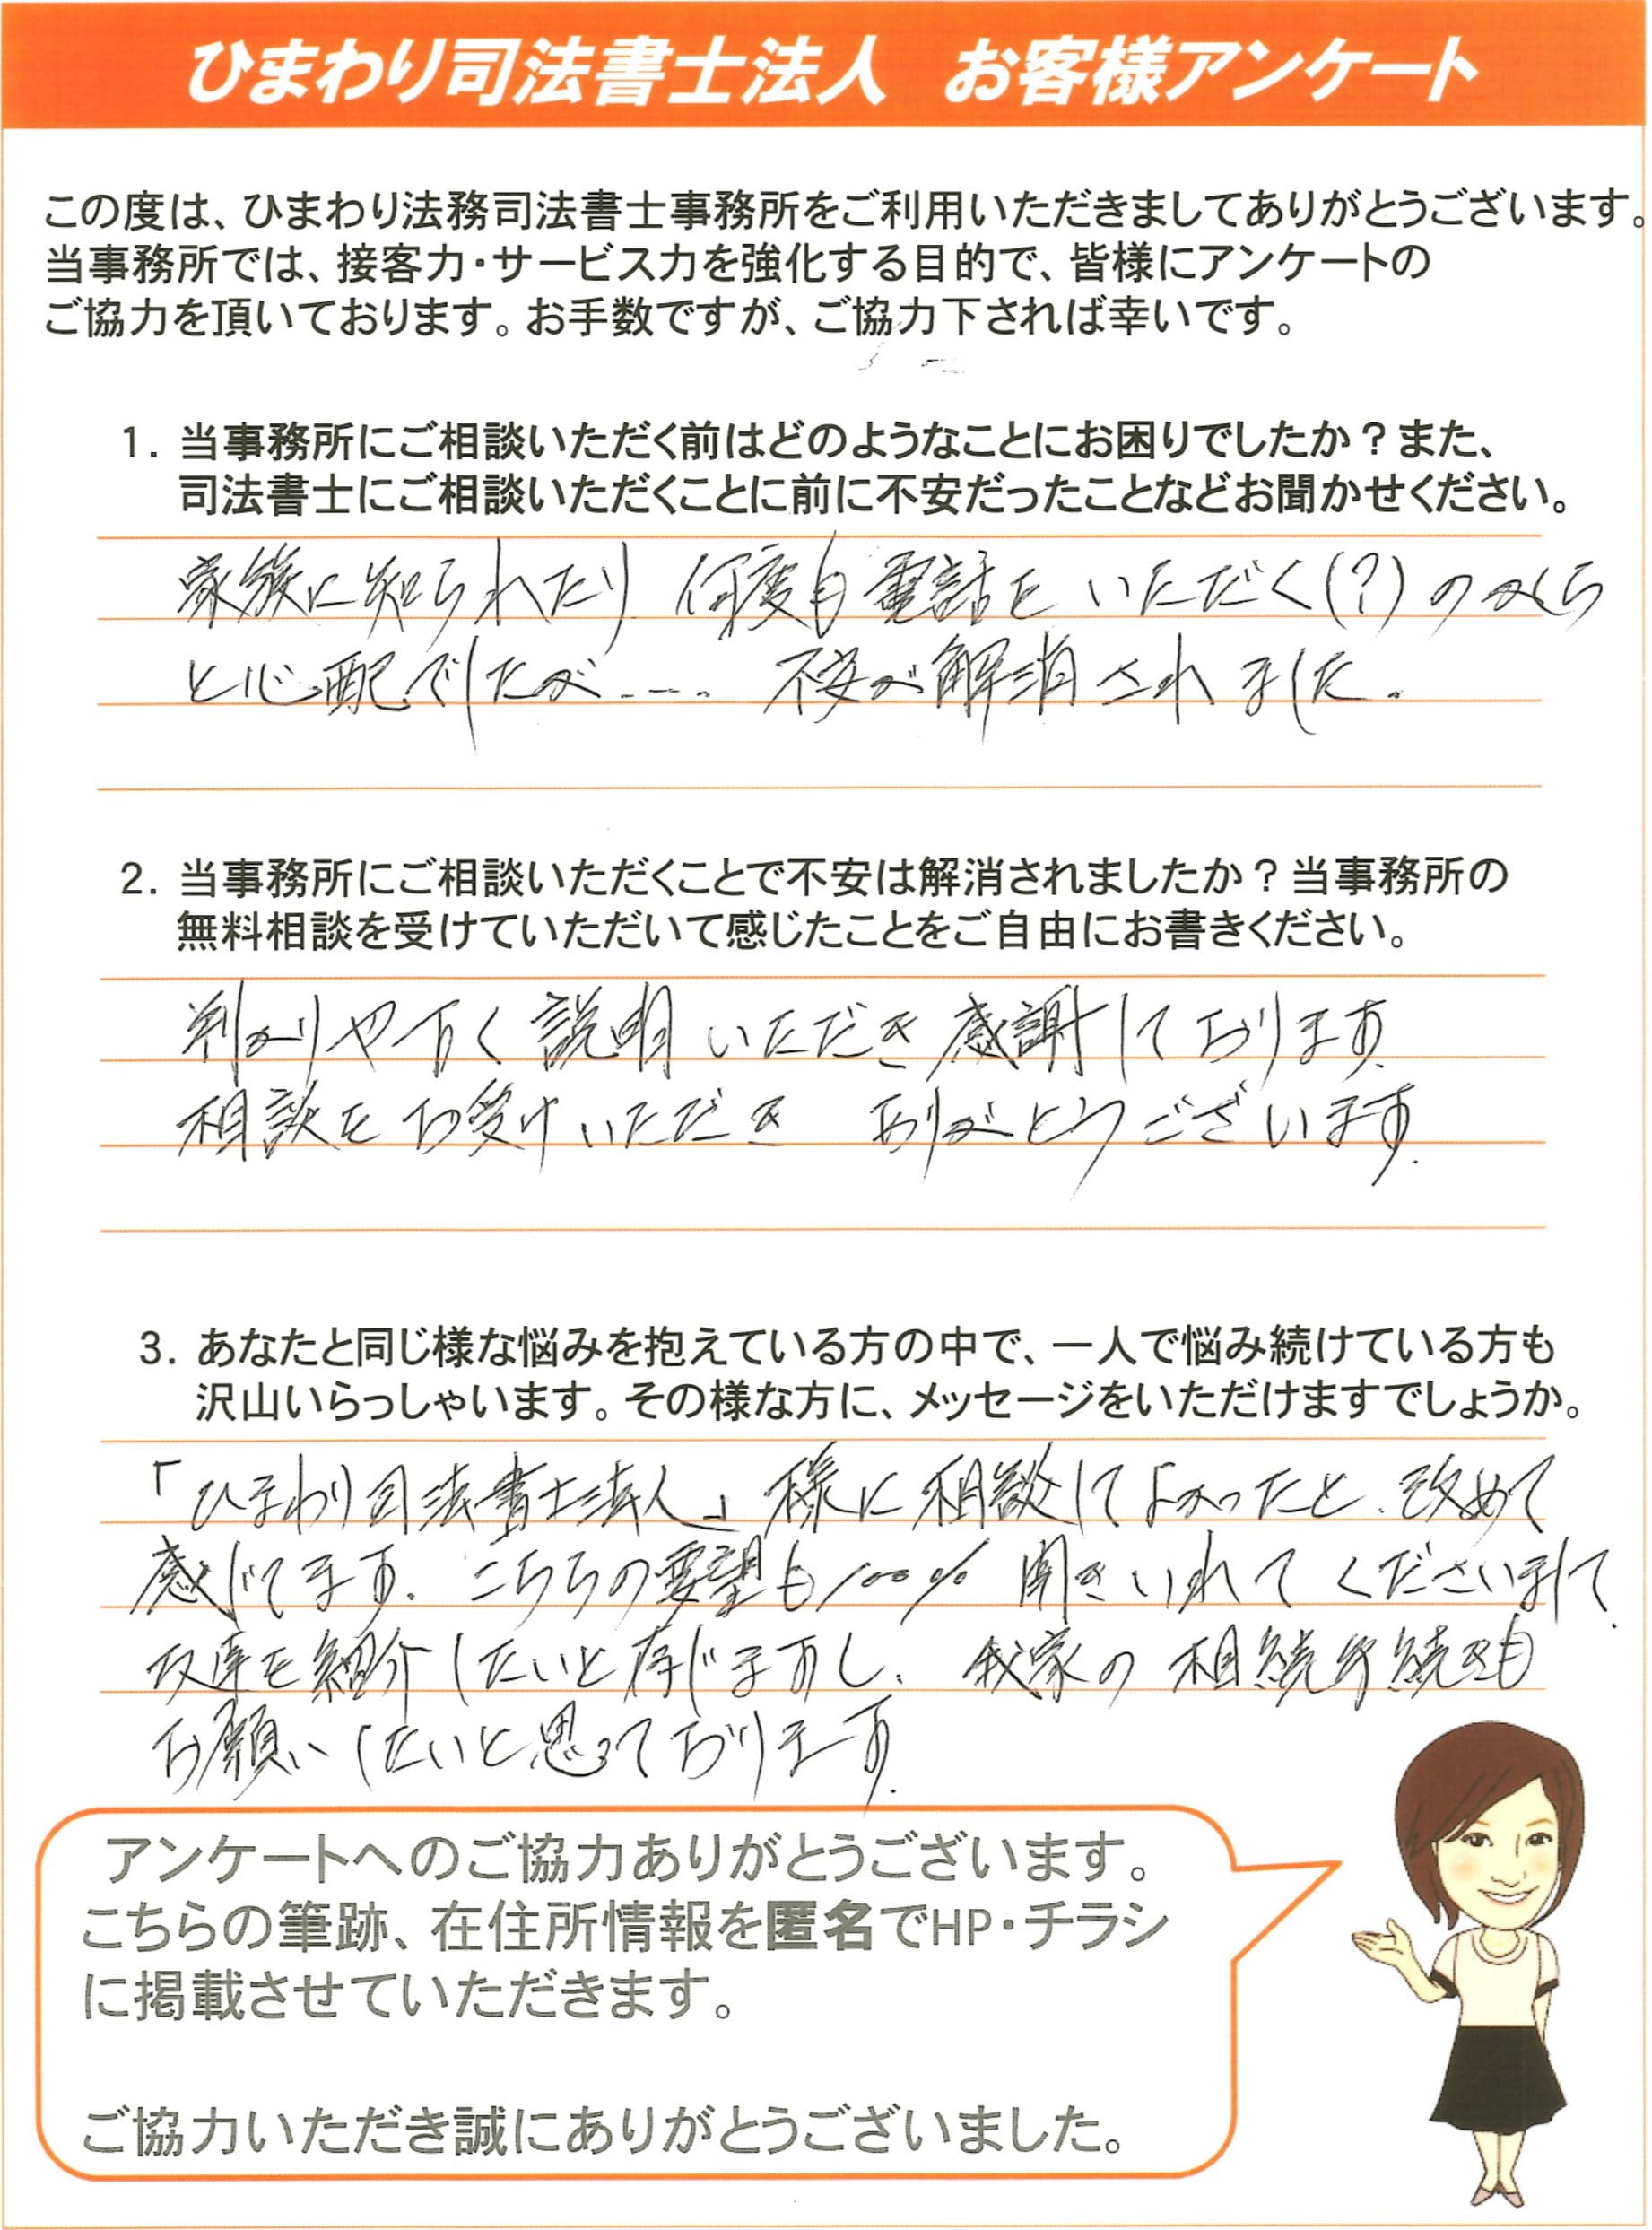 ひまわり司法書士法人 お客様アンケート
この度は、ひまわり法務司法書士事務所をご利用いただきましてありがとうございます。
当事務所では、接客力・サービス力を強化する目的で、皆様にアンケートの
ご協力を頂いております。お手数ですが、ご協力下されば幸いです。
1. 当事務所にご相談いただく前はどのようなことにお困りでしたか？また、
司法書士にご相談いただくことに前に不安だったことなどお聞かせください。
家族に知られたり 何度も電話をいただく(?)のかしら
と心配でしたが……。 不安が解消されました。
2. 当事務所にご相談いただくことで不安は解消されましたか？当事務所の
無料相談を受けていただいて感じたことをご自由にお書きください。
判かりやすく説明いただき感謝しております。
相談をお受けいただき ありがとうございます。
3. あなたと同じ様な悩みを抱えている方の中で、一人で悩み続けている方も
沢山いらっしゃいます。その様な方に、メッセージをいただけますでしょうか。
「ひまわり司法書士法人」様に相談してよかったと、改めて
感じてます。こちらの要望も100% 聞きいれてくださいまして、
友達を紹介したいと存じますし、我家の相続手続きも
お願いしたいと思っております。
アンケートへのご協力ありがとうございます。
こちらの筆跡、在住所情報を匿名でHP・チラシ
に掲載させていただきます。
ご協力いただき誠にありがとうございました。